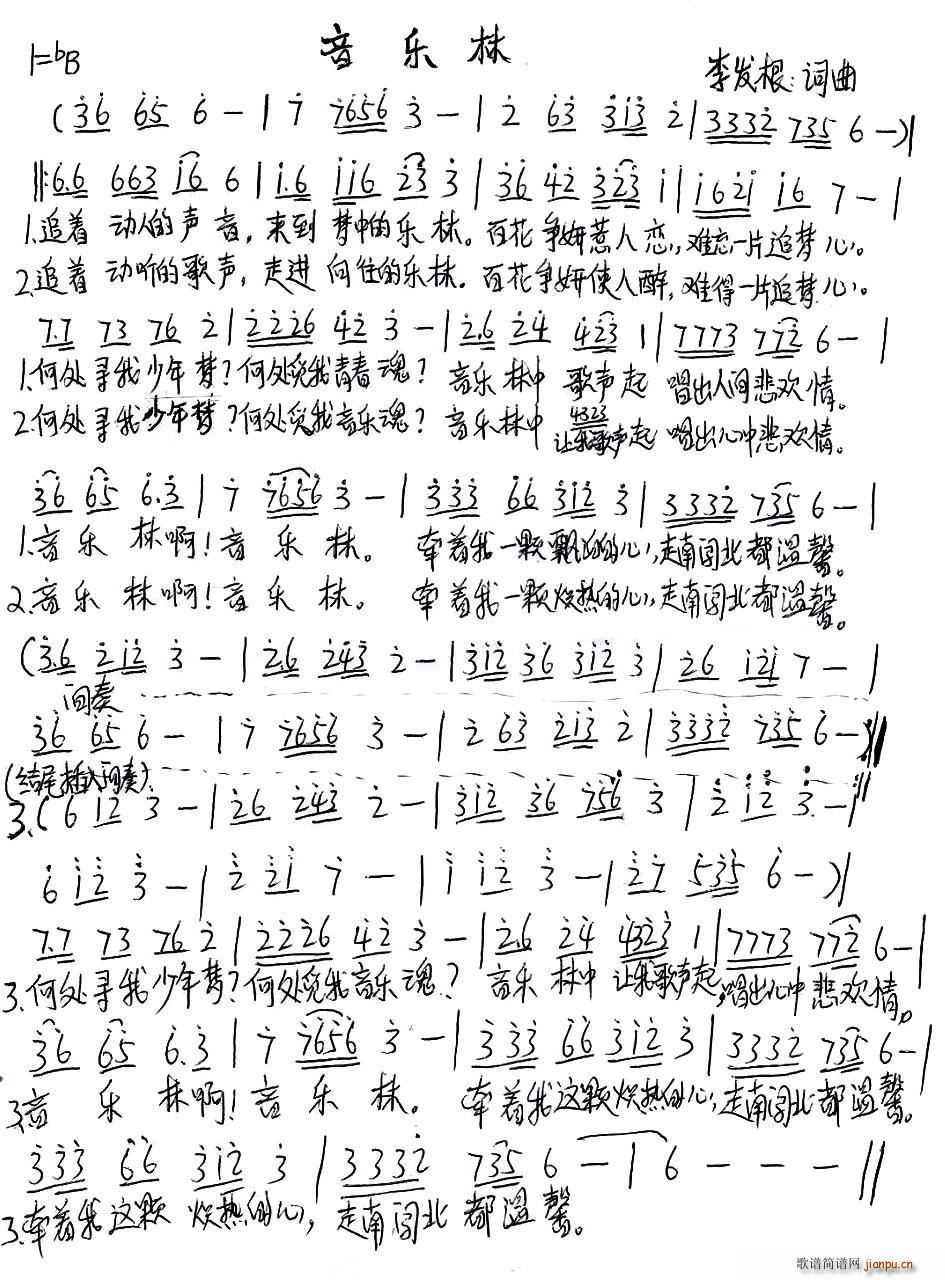 音乐林
1=ᵇB
李发根:词曲
(3̇6̇ 6̇5̇ 6̇ - | 7̇ 7̇6̇5̇6̇ 3̇ - | 2̇ 6̇3̇ 3̇1̇3̇ 2̇ | 3332̇ 735 6 -)|
‖:6.6 663 1̇6 6 | 1̇.6 1̇1̇6 2̇3̇ 3̇ | 3̇6̇ 4̇2̇ 3̇2̇3̇ 1̇ | 1̇62̇1̇ 1̇6 7 - |
1.追着 动人的声音,来到 梦中的乐林。百花争妍惹人恋,难忘一片追梦心。
2.追着 动听的歌声,走进 向往的乐林。百花争妍使人醉,难得一片追梦心。
7.7 73 76 2̇ | 2̇2̇2̇6 4̇2̇ 3̇ - | 2̇.6 2̇4̇ 4̇2̇3̇ 1 | 7773 772̇ 6 - |
1.何处寻我少年梦?何处觅我青春魂? 音乐林中 歌声起 唱出人间悲欢情。
4323
2.何处寻我少年梦?何处觅我音乐魂? 音乐林中 让我歌声起 唱出心中悲欢情。
3̇6̇ 6̇5̇ 6̇.3̇ | 7̇ 7̇6̇5̇6̇ 3̇ - | 3̇3̇3̇ 6̇6̇ 3̇1̇2̇ 3̇ | 3332̇ 735 6 - |
1.音乐林啊!音乐林。 牵着我一颗飘泊的心,走南闯北都温馨。
2.音乐林啊!音乐林。 牵着我一颗炽热的心,走南闯北都温馨。
(3̇.6 2̇1̇2̇ 3̇ - | 2̇.6 2̇4̇3̇ 2̇ - | 3̇1̇2̇ 3̇6 3̇1̇2̇ 3̇ | 2̇6 1̇2̇1̇ 7 - |
间奏
3̇6̇ 6̇5̇ 6̇ - | 7̇ 7̇6̇5̇6̇ 3̇ - | 2̇ 6̇3̇ 2̇1̇3̇ 2̇ | 3̇3̇3̇2̇ 7̇3̇5̇ 6̇ -:‖
(结尾插入间奏)
3.(6 1̇2̇ 3̇ - | 2̇6 2̇4̇3̇ 2̇ - | 3̇1̇2̇ 3̇6 7̇5̇6̇ 3̇ | 2̇ 1̇2̇ 3̇ - ‖
6̇ 1̇2̇ 3̇ - | 2̇ 2̇1̇ 7̇ - | 1̇ 1̇2̇ 3̇ - | 2̇7̇ 5̇3̇5̇ 6̇ -)|
7.7 73 76 2̇ | 2̇2̇2̇6 4̇2̇ 3̇ - | 2̇.6 2̇4̇ 4̇3̇2̇3̇ 1 | 7773 772̇ 6 - |
3.何处寻我少年梦?何处觅我音乐魂? 音乐林中 让我歌声起,唱出心中悲欢情。
3̇6̇ 6̇5̇ 6̇.3̇ | 7̇ 7̇6̇5̇6̇ 3̇ - | 3̇3̇3̇ 6̇6̇ 3̇1̇2̇ 3̇ | 3332̇ 735 6 - |
3.音乐林啊!音乐林。 牵着我这颗炽热的心,走南闯北都温馨。
3̇3̇3̇ 6̇6̇ 3̇1̇2̇ 3̇ | 3332̇ 735 6 - | 6 - - - ‖
3.牵着我这颗 炽热的心, 走南闯北 都温馨。
歌谱简谱网
jianpu.cn